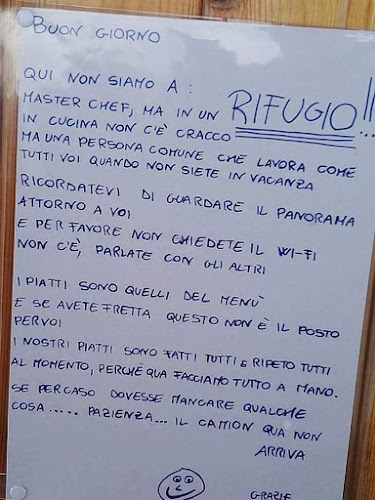 BUON GIORNO
QUI NON SIAMO A :
MASTER CHEF, MA IN UN RIFUGIO!!...
IN CUCINA NON C'È CRACCO
MA UNA PERSONA COMUNE CHE LAVORA COME
TUTTI VOI QUANDO NON SIETE IN VACANZA
RICORDATEVI DI GUARDARE IL PANORAMA
ATTORNO A VOI
E PER FAVORE NON CHIEDETE IL WI-FI
NON C'È, PARLATE CON GLI ALTRI
I PIATTI SONO QUELLI DEL MENÙ
E SE AVETE FRETTA QUESTO NON È IL POSTO
PER VOI
I NOSTRI PIATTI SONO FATTI TUTTI E RIPETO TUTTI
AL MOMENTO, PERCHÉ QUA FACCIAMO TUTTO A MANO.
SE PER CASO DOVESSE MANCARE QUALCHE
COSA ..... PAZIENZA... IL CAMION QUA NON
ARRIVA
GRAZIE